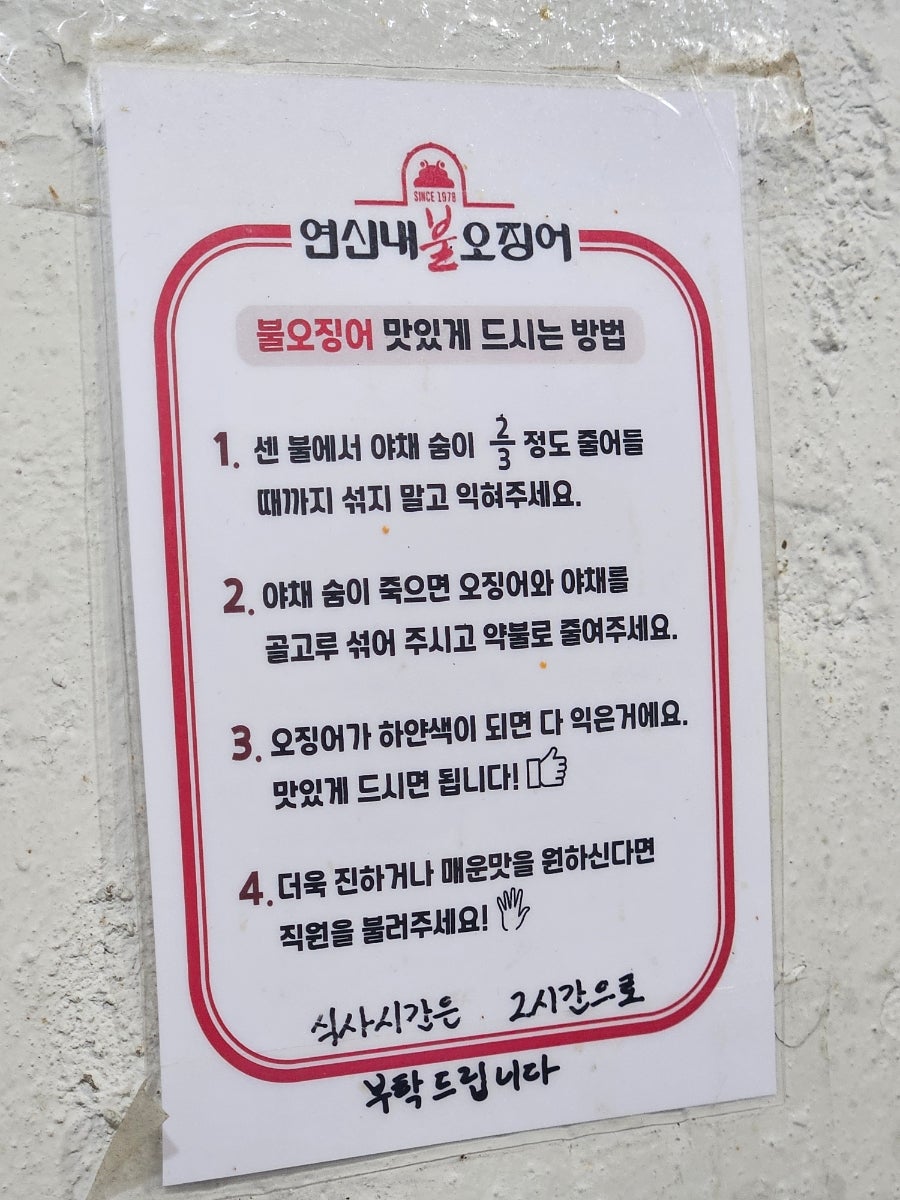 SINCE 1978
연신내불오징어
불오징어 맛있게 드시는 방법
1. 센 불에서 야채 숨이 2/3 정도 줄어들
때까지 섞지 말고 익혀주세요.
2. 야채 숨이 죽으면 오징어와 야채를
골고루 섞어 주시고 약불로 줄여주세요.
3. 오징어가 하얀색이 되면 다 익은거에요.
맛있게 드시면 됩니다!
4. 더욱 진하거나 매운맛을 원하신다면
직원을 불러주세요!
식사시간은 2시간으로
부탁드립니다